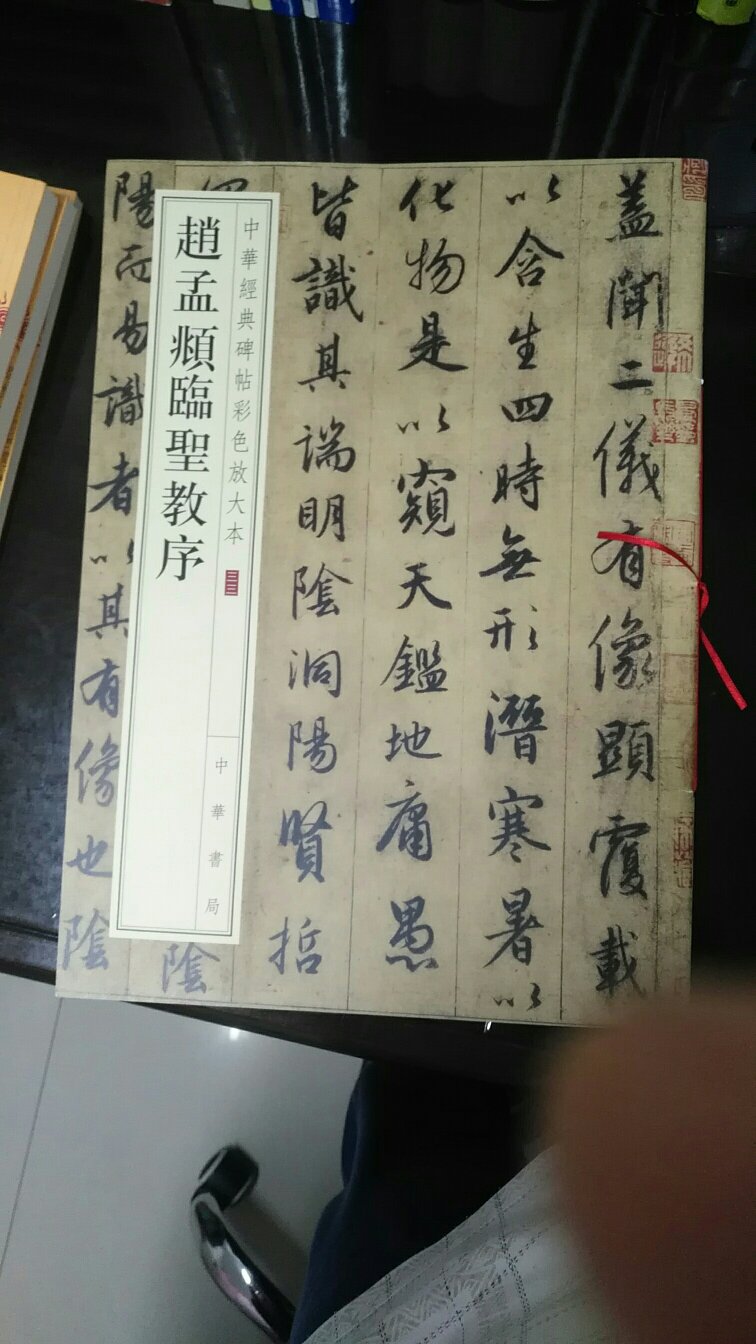 蓋聞二儀有像顯覆載
以含生四時無形潛寒暑以
化物是以窺天鑑地庸愚
皆識其端明陰洞陽賢哲
陰
陽而易識者以其有像也陰
中華經典碑帖彩色放大本
中華書局
趙孟頫臨聖教序